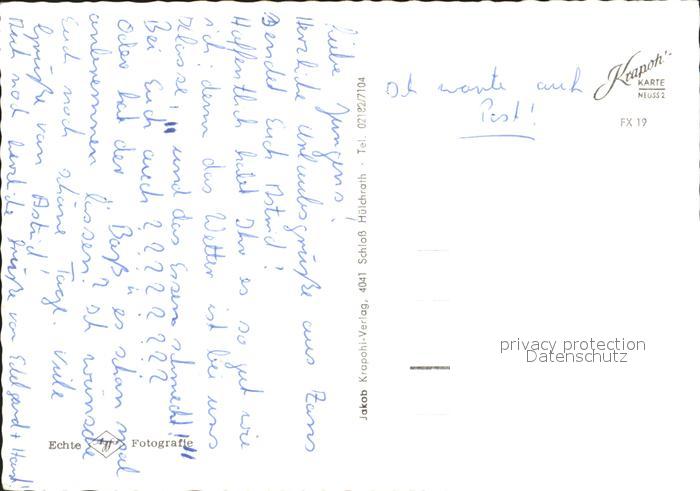 Liebe Jungens!
Herzliche Urlaubsgrüße aus
sendet Euch Astrid!
Hoffentlich habt Ihr es so gut wie
ich, denn das Wetter ist bei uns
Klasse! und das Essen schmeckt!
Bei Euch auch ???????
Oder hat der Baß ü es schon mal
anbrennen lassen? Ich wünsche
Euch noch schöne Tage. Viele
Grüße von Astrid!
Und noch herzliche Grüße von Edelgard + Horst!
Ich warte auch
Post!
Krapohl-
KARTE
NEUSS 2
FX 19
Jakob Krapohl-Verlag, 4041 Schloß Hülchrath · Tel. 02182/7104
Echte Agfa Fotografie
privacy protection
Datenschutz